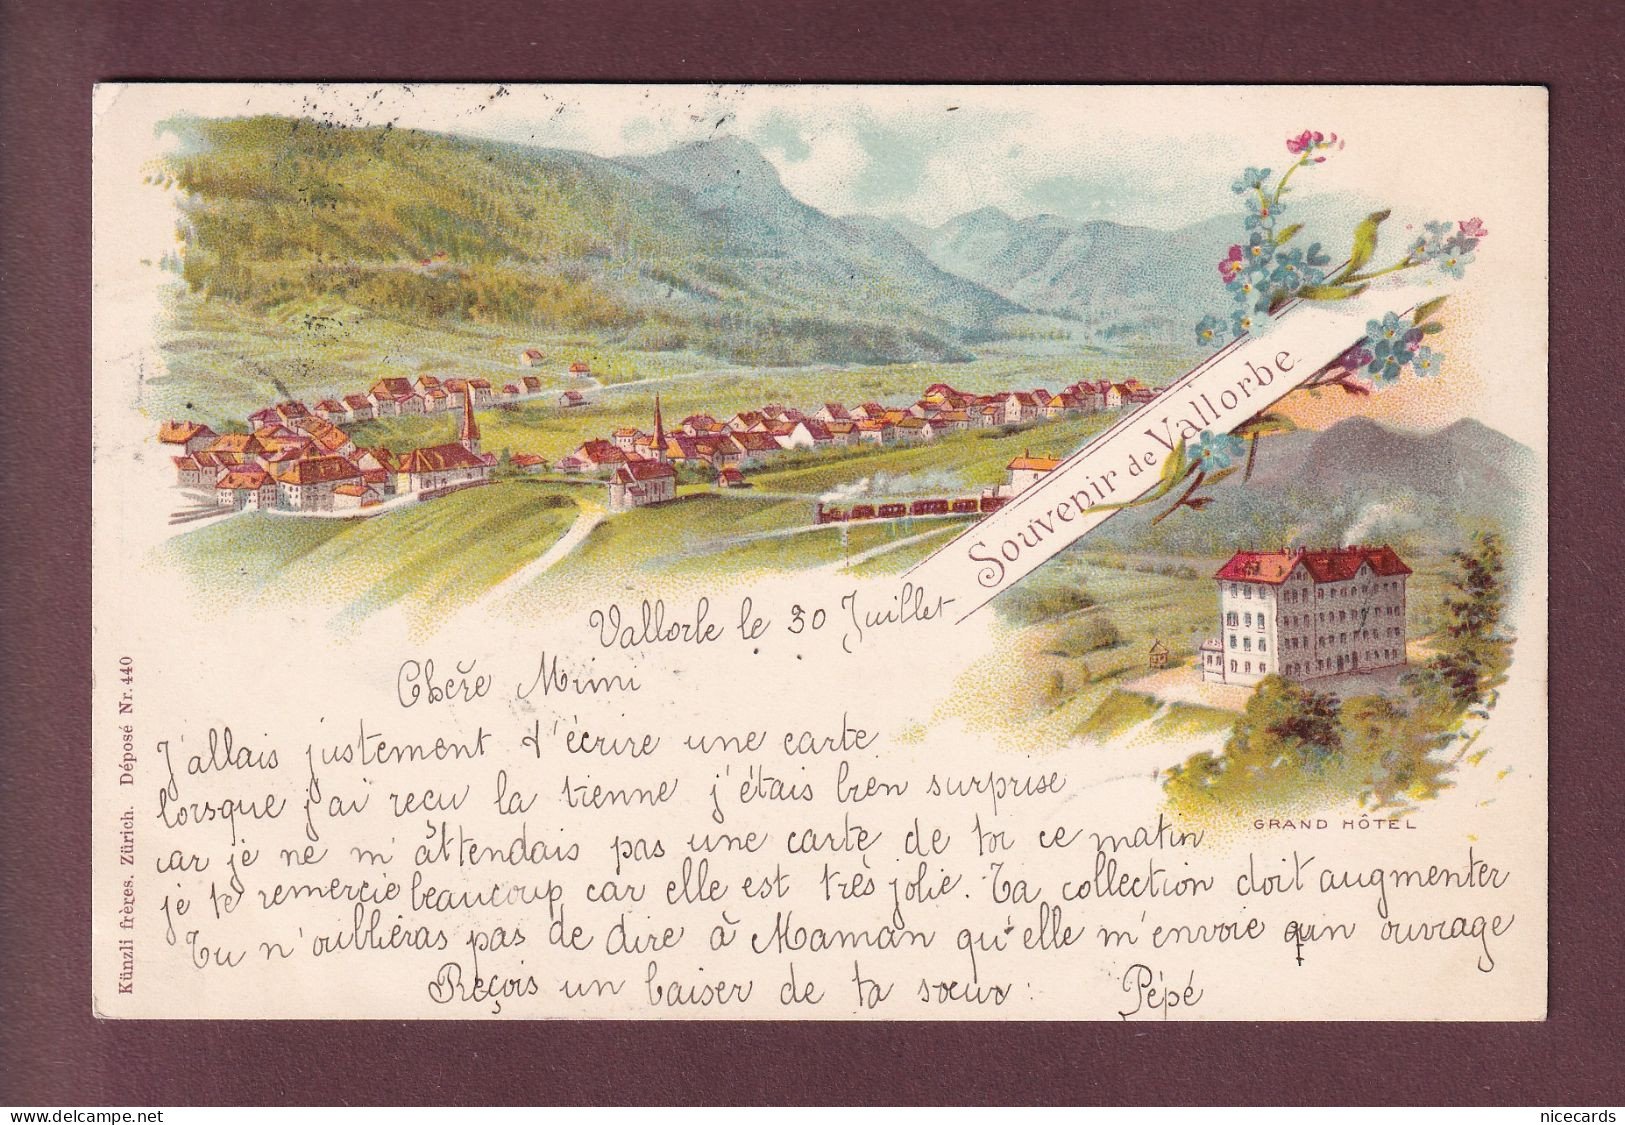 Souvenir de Vallorbe
GRAND HÔTEL
Künzli frères. Zürich. Déposé Nr. 440
Vallorbe le 30 Juillet
Chère Mimi
J'allais justement t'écrire une carte
lorsque j'ai reçu la tienne j'étais bien surprise
car je ne m'attendais pas une carte de toi ce matin
je te remercie beaucoup car elle est très jolie. Ta collection doit augmenter
Tu n'oublieras pas de dire à Maman qu'elle m'envoie un ouvrage
Reçois un baiser de ta sœur: Pépé
nicecards